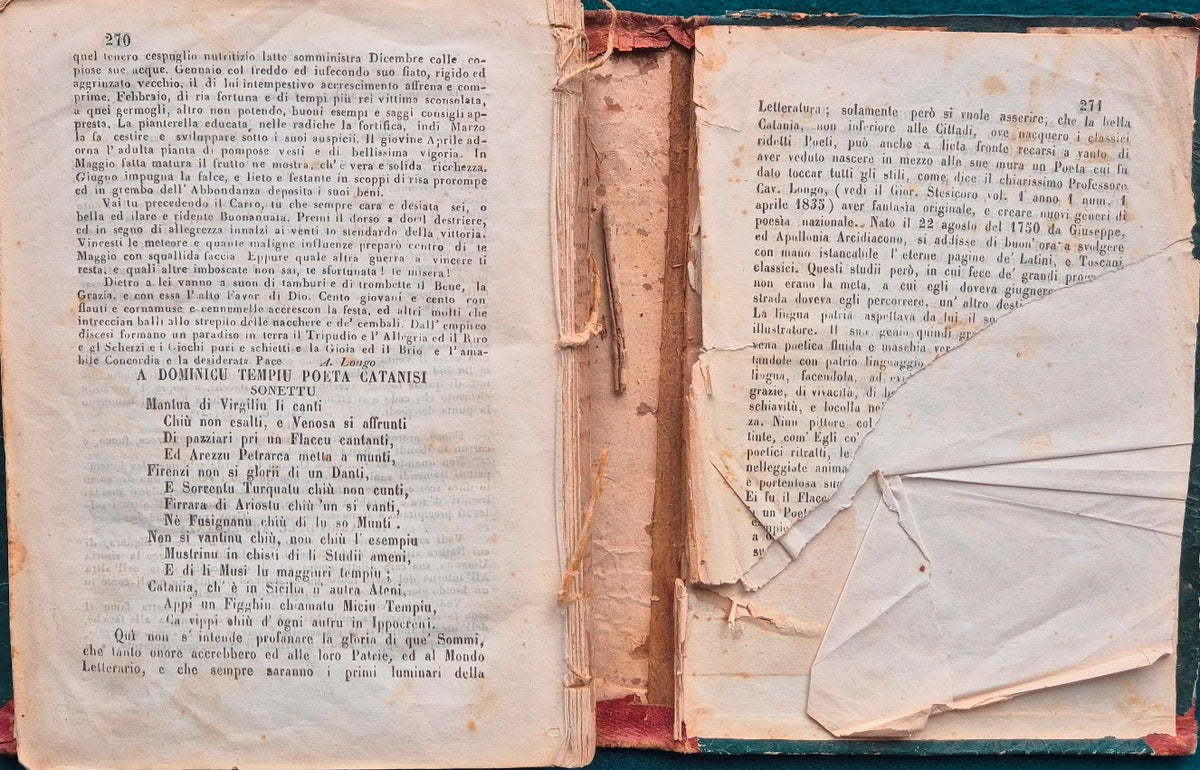 270
quel tenero cespuglio nutritizio latte somministra Dicembre colle co-
piose sue acque. Gennaio col freddo ed infecondo suo fiato, rigido ed
aggrinzato vecchio, il di lui intempestivo accrescimento affrena e com-
prime. Febbraio, di ria fortuna e di tempi più rei vittima sconsolata,
a quei germogli, altro non potendo, buoni esempi e saggi consigli ap-
presta. La pianterella educata, nelle radiche la fortifica, indi Marzo
la fa cestire e sviluppare sotto i suoi auspicii. Il giovine Aprile ad-
orna l'adulta pianta di pompose vesti e di bellissima vigoria. In
Maggio fatta matura il frutto ne mostra, ch'è vera e solida ricchezza.
Giugno impugna la falce, e lieto e festante in scoppi di risa prorompe
ed in grembo dell'Abbondanza deposita i suoi beni.
Vai tu precedendo il Carro, tu che sempre cara e desiata sei, o
bella ed ilare e ridente Buonannata. Premi il dorso a docil destriere,
ed in segno di allegrezza innalzi ai venti lo stendardo della vittoria.
Vincesti le meteore e quante maligne influenze preparò contro di te
Maggio con squallida faccia Eppure quale altra guerra a vincere ti
resta, e quali altre imboscate non sai, te sfortunata! te misera!
Dietro a lei vanno a suon di tamburi e di trombette il Bene, la
Grazia, e con essa l'alto Favor di Dio. Cento giovani e cento con
flauti e cornamuse e cennmelle accrescon la festa, ed altri molti che
intreccian balli allo strepito delle nacchere e de' cembali. Dall'empireo
discesi formano un paradiso in terra il Tripudio e l'Allegria ed il Riso
e gl Scherzi e i Giochi puri e schietti e la Gioia ed il Brio e l'ama-
bile Concordia e la desiderata Pace A. Longo
A DOMINICU TEMPIU POETA CATANISI
SONETTU
Mantua di Virgiliu li canti
Chiù non esalti, e Venosa si affrunti
Di pazziari pri un Flaccu cantanti,
Ed Arezzu Petrarca metta a munti,
Firenzi non si glorii di un Danti,
E Sorrentu Turquatu chiù non cunti,
Firrara di Ariostu chiù 'un si vanti,
Nè Fusignanu chiù di lu so Munti.
Non si vantinu chiù, non chiù l'esempiu
Mustrinu in chisti di li Studii ameni,
E di li Musi lu maggiuri tempiu;
Catania, ch'è in Sicilia n'autra Ateni,
Appi un Figghiu chiamatu Miciu Tempiu,
Ca vippi chiù d'ogni autru in Ippocreni.
Quì non s'intende profanare la gloria di que' Sommi,
che tanto onore accrebbero ed alle loro Patrie, ed al Mondo
Letterario, e che sempre saranno i primi luminari della
271
Letteratura; solamente però si vuole asserire, che la bella
Catania, non inferiore alle Cittadi, ove nacquero i classici
ridetti Poeti, può anche a lieta fronte recarsi a vanto di
aver veduto nascere in mezzo alle sue mura un Poeta cui fu
dato toccar tutti gli stili, come dice il chiarissimo Professore
Cav. Longo, (vedi il Gior. Stesicoro vol. 1 anno 1 num. 1
aprile 1835) aver fantasia originale, e creare nuovi generi di
poesia nazionale. Nato il 22 agosto del 1750 da Giuseppe,
ed Apollonia Arcidiacono, si addisse di buon'ora a svolgere
con mano istancabile l'eterne pagine de' Latini, e Toscani
classici. Questi studii però, in cui fece de' grandi
non erano la meta, a cui egli doveva giugnere
strada doveva egli percorrere, un'altro
La lingua patria aspettava da lui il
illustratore. Il suo genio quindi
vena poetica fluida e maschia
tandole con patrio linguaggio
lingua, facendola, ad
grazie, di vivacità, di
schiavitù, e locolla
za. Niun pittore
tinte, com'Egli
poetici ritratti, le
nelleggiate
e portentosa
Ei fu il
un